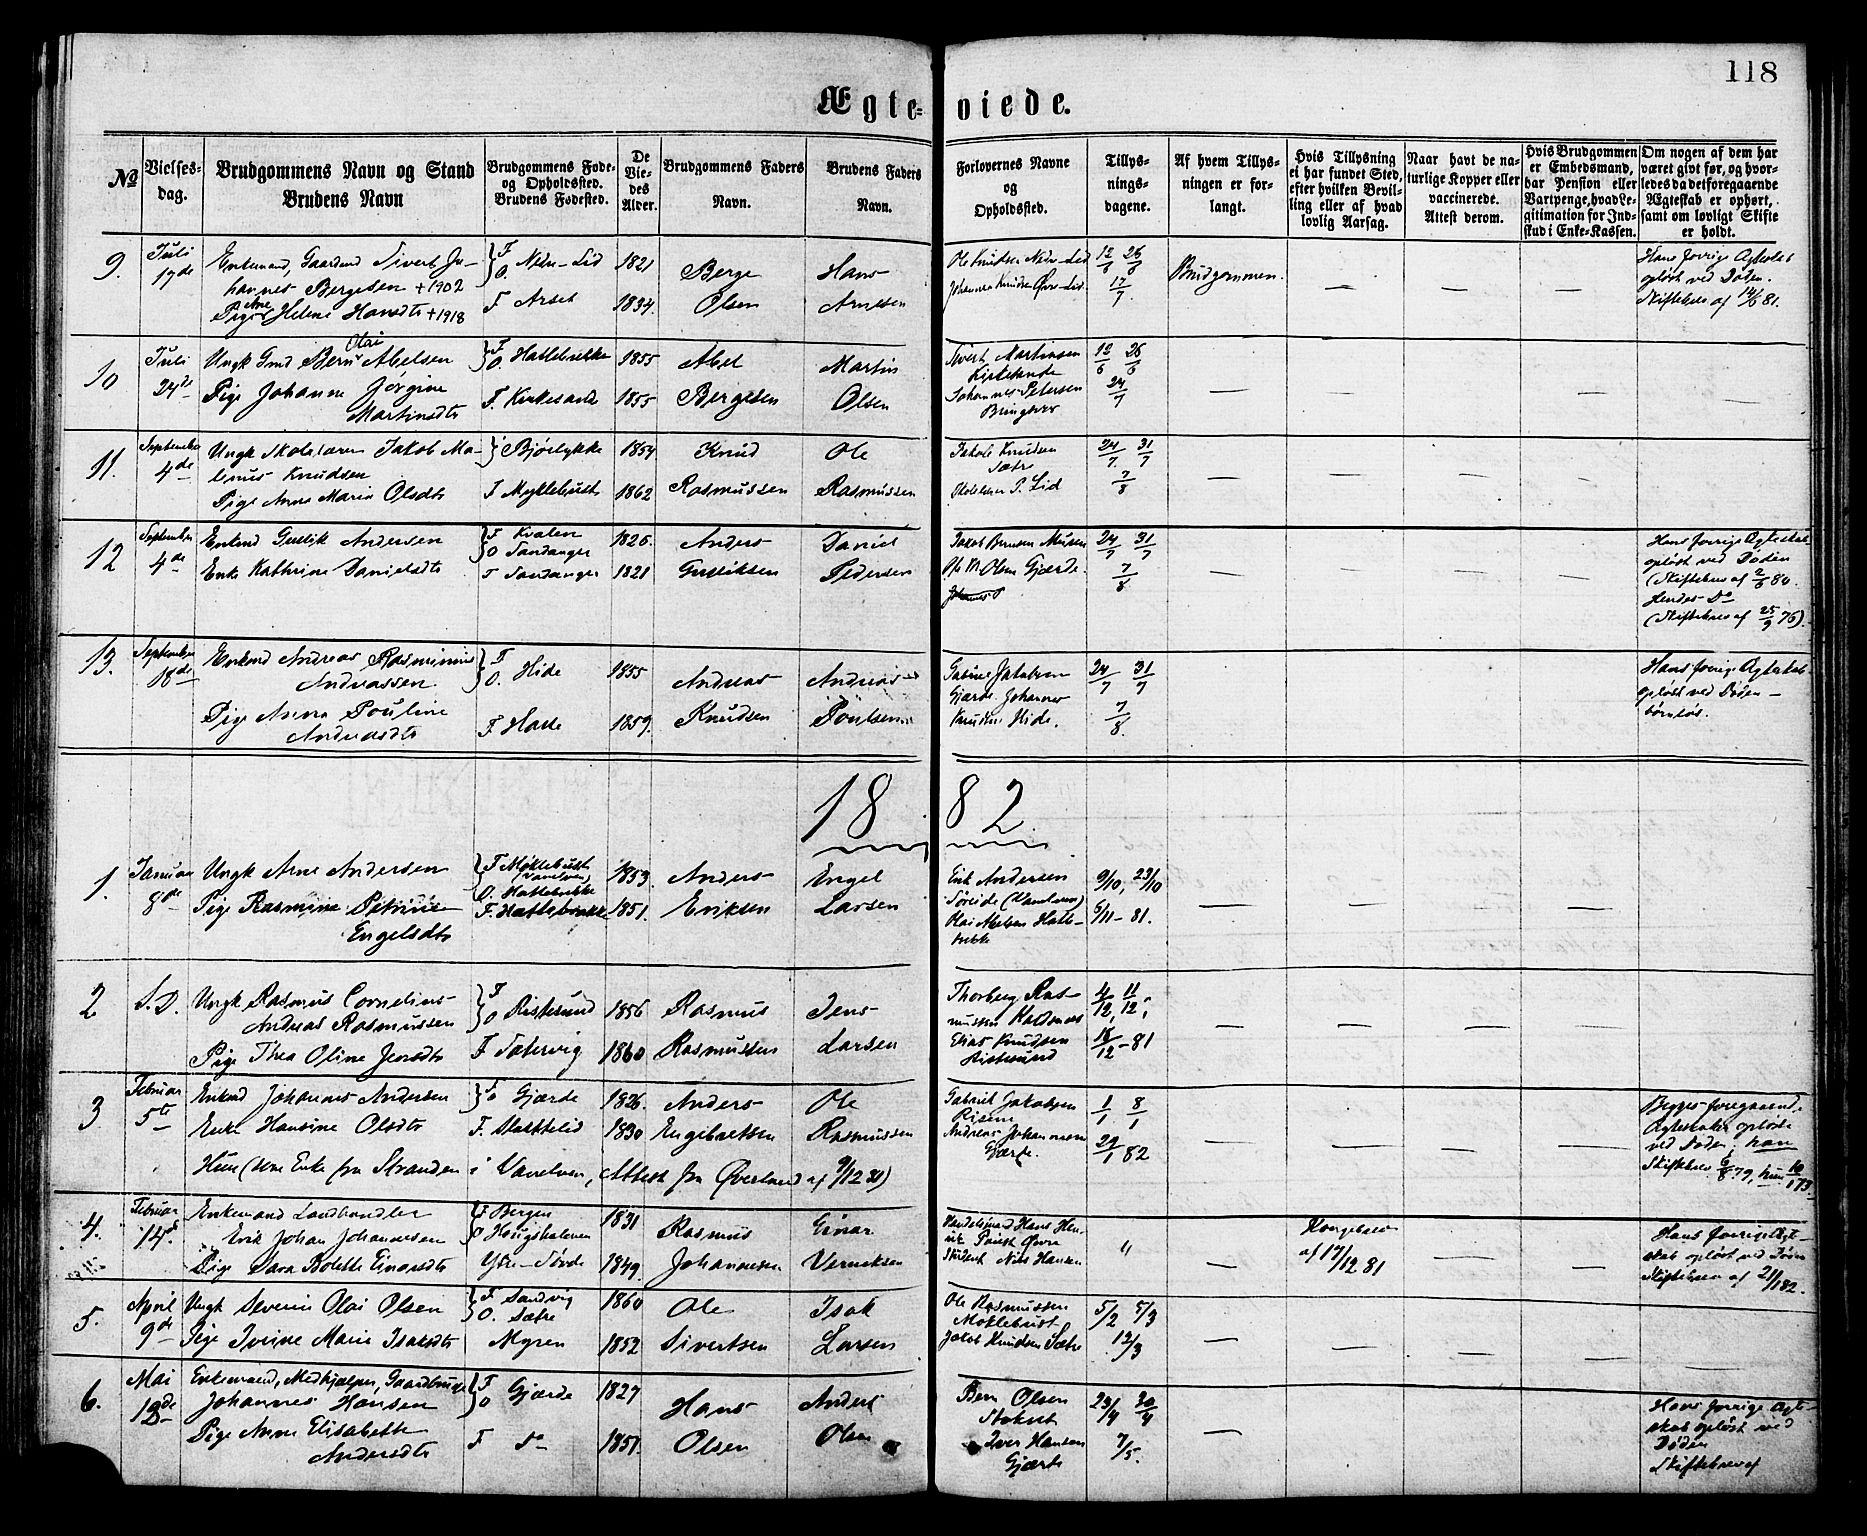 118
Ægteviede.
№
Vielses-
dag.
Brudgommens Navn og Stand
Brudens Navn
Brudgommens Føde-
og Opholdssted.
Brudens Fødested.
De
Vie-
des
Alder.
Brudgommens Faders
Navn.
Brudens Faders
Navn.
Forlovernes Navne
og
Opholdssted.
Tillys-
nings-
dagene.
Af hvem Tillys-
ningen er for-
langt.
Hvis Tillysning
ei har fundet Sted,
efter hvilken Bevil-
ling eller af hvad
lovlig Aarsag.
Naar havt de na-
turlige Kopper eller
vaccinerede.
Attest derom.
Hvis Brudgommen
er Embedsmand,
har Pension eller
Vartpenge, hvad Le-
gitimation for Ind-
skud i Enke-Kassen.
Om nogen af dem har
været givt før, og hvor-
ledes da det foregaaende
Ægteskab er ophørt,
samt om lovligt Skifte
er holdt.
9. Juli 17de
Enkemand, Gaardmd Sivert Jo-
hannes Bergesen +1902
Pige Ane Helene Hansdtr +1918
F O Nedre-Lid 1821
F Arset 1834.
Berge Olsen
Hans Arnesen
Ole Knudsen Nedre-Lid
Johannes Knudsen Øvre-Lid
12/6 26/6
17/7.
Brudgommen.
Hans forrige Ægteskab
opløst ved Døden.
Skiftebrev af 14/6 81.
10 Juli 24de
Ungk Gmd Bernt Olai Abelsen
Pige Johanne Jorgine
Martinsdtr
F O. Hattebrekke 1855
F. Kirkesande 1855
Abel Bergesen
Martin Olsen
Sivert Martinsen
Kirkesande
Johannes Petersen
Bringsver
12/6 26/6
24/7
11. September 4de
Ungk Skolelærer Jakob Ma-
linus Knudsen
Pige Anne Marie Olsdtr
Bjørlykke 1854
F Myklebust 1862
Knud Rasmussen
Ole Rasmussen
Jakob Knudsen
Sætre
Skolelærer P. Lid
24/7. 31/7
7/8
12 September 4de
Enkmd Gullik Andersen
Enke Kathrine Danielsdtr
F Kvalen
O Sandanger 1826.
F Sandanger 1821
Anders Gulliksen
Daniel Pedersen
Jakob Berntsen
Ole M. Olsen Gjærde.
24/7 31/7
7/8
Hans forrige Ægteskab
opløst ved Døden
(Skiftebrev af 2/8 80.
Hendes Do
(Skiftebrev af 25/9 76).
13. September 18de
Enkmd Andreas Rasminus
Andreassen
Pige Anne Pouline
Andreasdtr
F O. Hide 1855
F Hasle 1859.
Andreas Knudsen
Andreas Poulsen
Gabriel Jakobsen
Gjærde. Johannes
Knudsen Hide.
24/7 31/7
7/8.
Hans forrige Ægteskab
opløst ved Døden —
børnløs.
1882.
1. Januar 8de
Ungk Arne Andersen
Pige Rasmine Petrine
Engelsdtr
F Myklebust
(Vanelven)
O. Hattebrekke 1853.
F. Hattebrekke 1851.
Anders Eriksen
Engel Larsen
Erik Andersen
Søreide (Vanelven)
Olai Abelsen Hatte-
brekke
9/10, 23/10
6/11 - 81.
2 S. D.
Ungk Rasmus Cornelius
Andreas Rasmussen
Pige Thea Oline Jensdtr
F O Ristesund 1856
F Sætervig 1860
Rasmus Rasmussen
Jens Larsen
Thorberg Ras-
mussen
Elias Knudsen
Ristesund
4/12, 11/12,
18/12 - 81
3 Februar 5te
Enkmd Johannes Andersen
Enke Hansine Olsdtr
Hun (som Enke fra Stranden i Vanelven, Attest fra af 9/12 81)
F O Gjærde 1826.
F. 1830
Anders Engebretsen
Ole Rasmussen
Gabriel Jakobsen
Andreas Johannesen
Gjærde.
1/1 8/1
29/1 82
Begges foregaaende
Ægteskaber opløste
ved Døden: hans
Skiftebrev 6/8 79, hun 10/1 73
4. Februar 14de
Enkemand Landhandler
Erik Johan Johannesen
Pige Sara Bolette Einarsdtr
F Bergen
O Haugsholmen 1831
Ytre-Sørde 1849.
Rasmus Johannesen
Einar Verniksen
Handelsmand Hans Hen-
rik
Student Nils Hansen
"
Kongebrev
af 17/12 81
Hans forrige Ægte-
skab opløst ved Døden
Skiftebrev af 21/1 82.
5. April 9de
Ungk Severin Olai Olsen
Pige Ivrine Marie Isaksdtr
F. Sandvig
O. Sætre 1860
Myren 1852
Ole Sivertsen
Isak Larsen
Ole Rasmussen
Moklebust
Jakob Knudsen Sætre
5/2 5/3
12/3
6. Mai 18de
Enkemand, Medhjælper, Gaardbruger
Johannes Hansen
Pige Anne Elisabeth
Andersdtr
F O Gjærde 1827
F Do 1851.
Hans Olsen
Anders Olsen
Bern Olsen
Iver Hansen
Gjærde
23/4 30/4
7/5.
Hans forrige Ægte-
skab opløst ved
Døden
Skiftebrev af